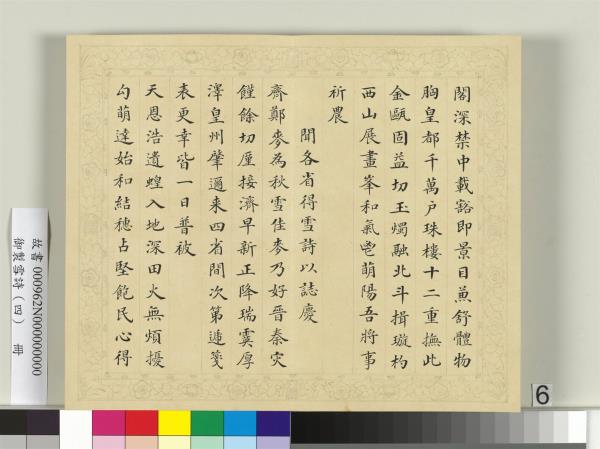 閣深禁中載豁即景目兼舒體物
胸皇都千萬戶珠樓十二重撫此
金甌固益切玉燭融北斗揖璇杓
西山展畫峯和氣鬯萌陽吾將事
祈農
聞各省得雪詩以誌慶
齊鄭麥為秋雪佳麥乃好晉秦灾
饉餘切厪接濟早新正降瑞霙厚
澤皇州肇邇來四省間次第遞箋
表更幸皆一日普被
天恩浩遺蝗入地深田火無煩擾
勾萌達始和結穗占堅飽民心得
故書000962N000000000
御製雪詩(四) 冊
6